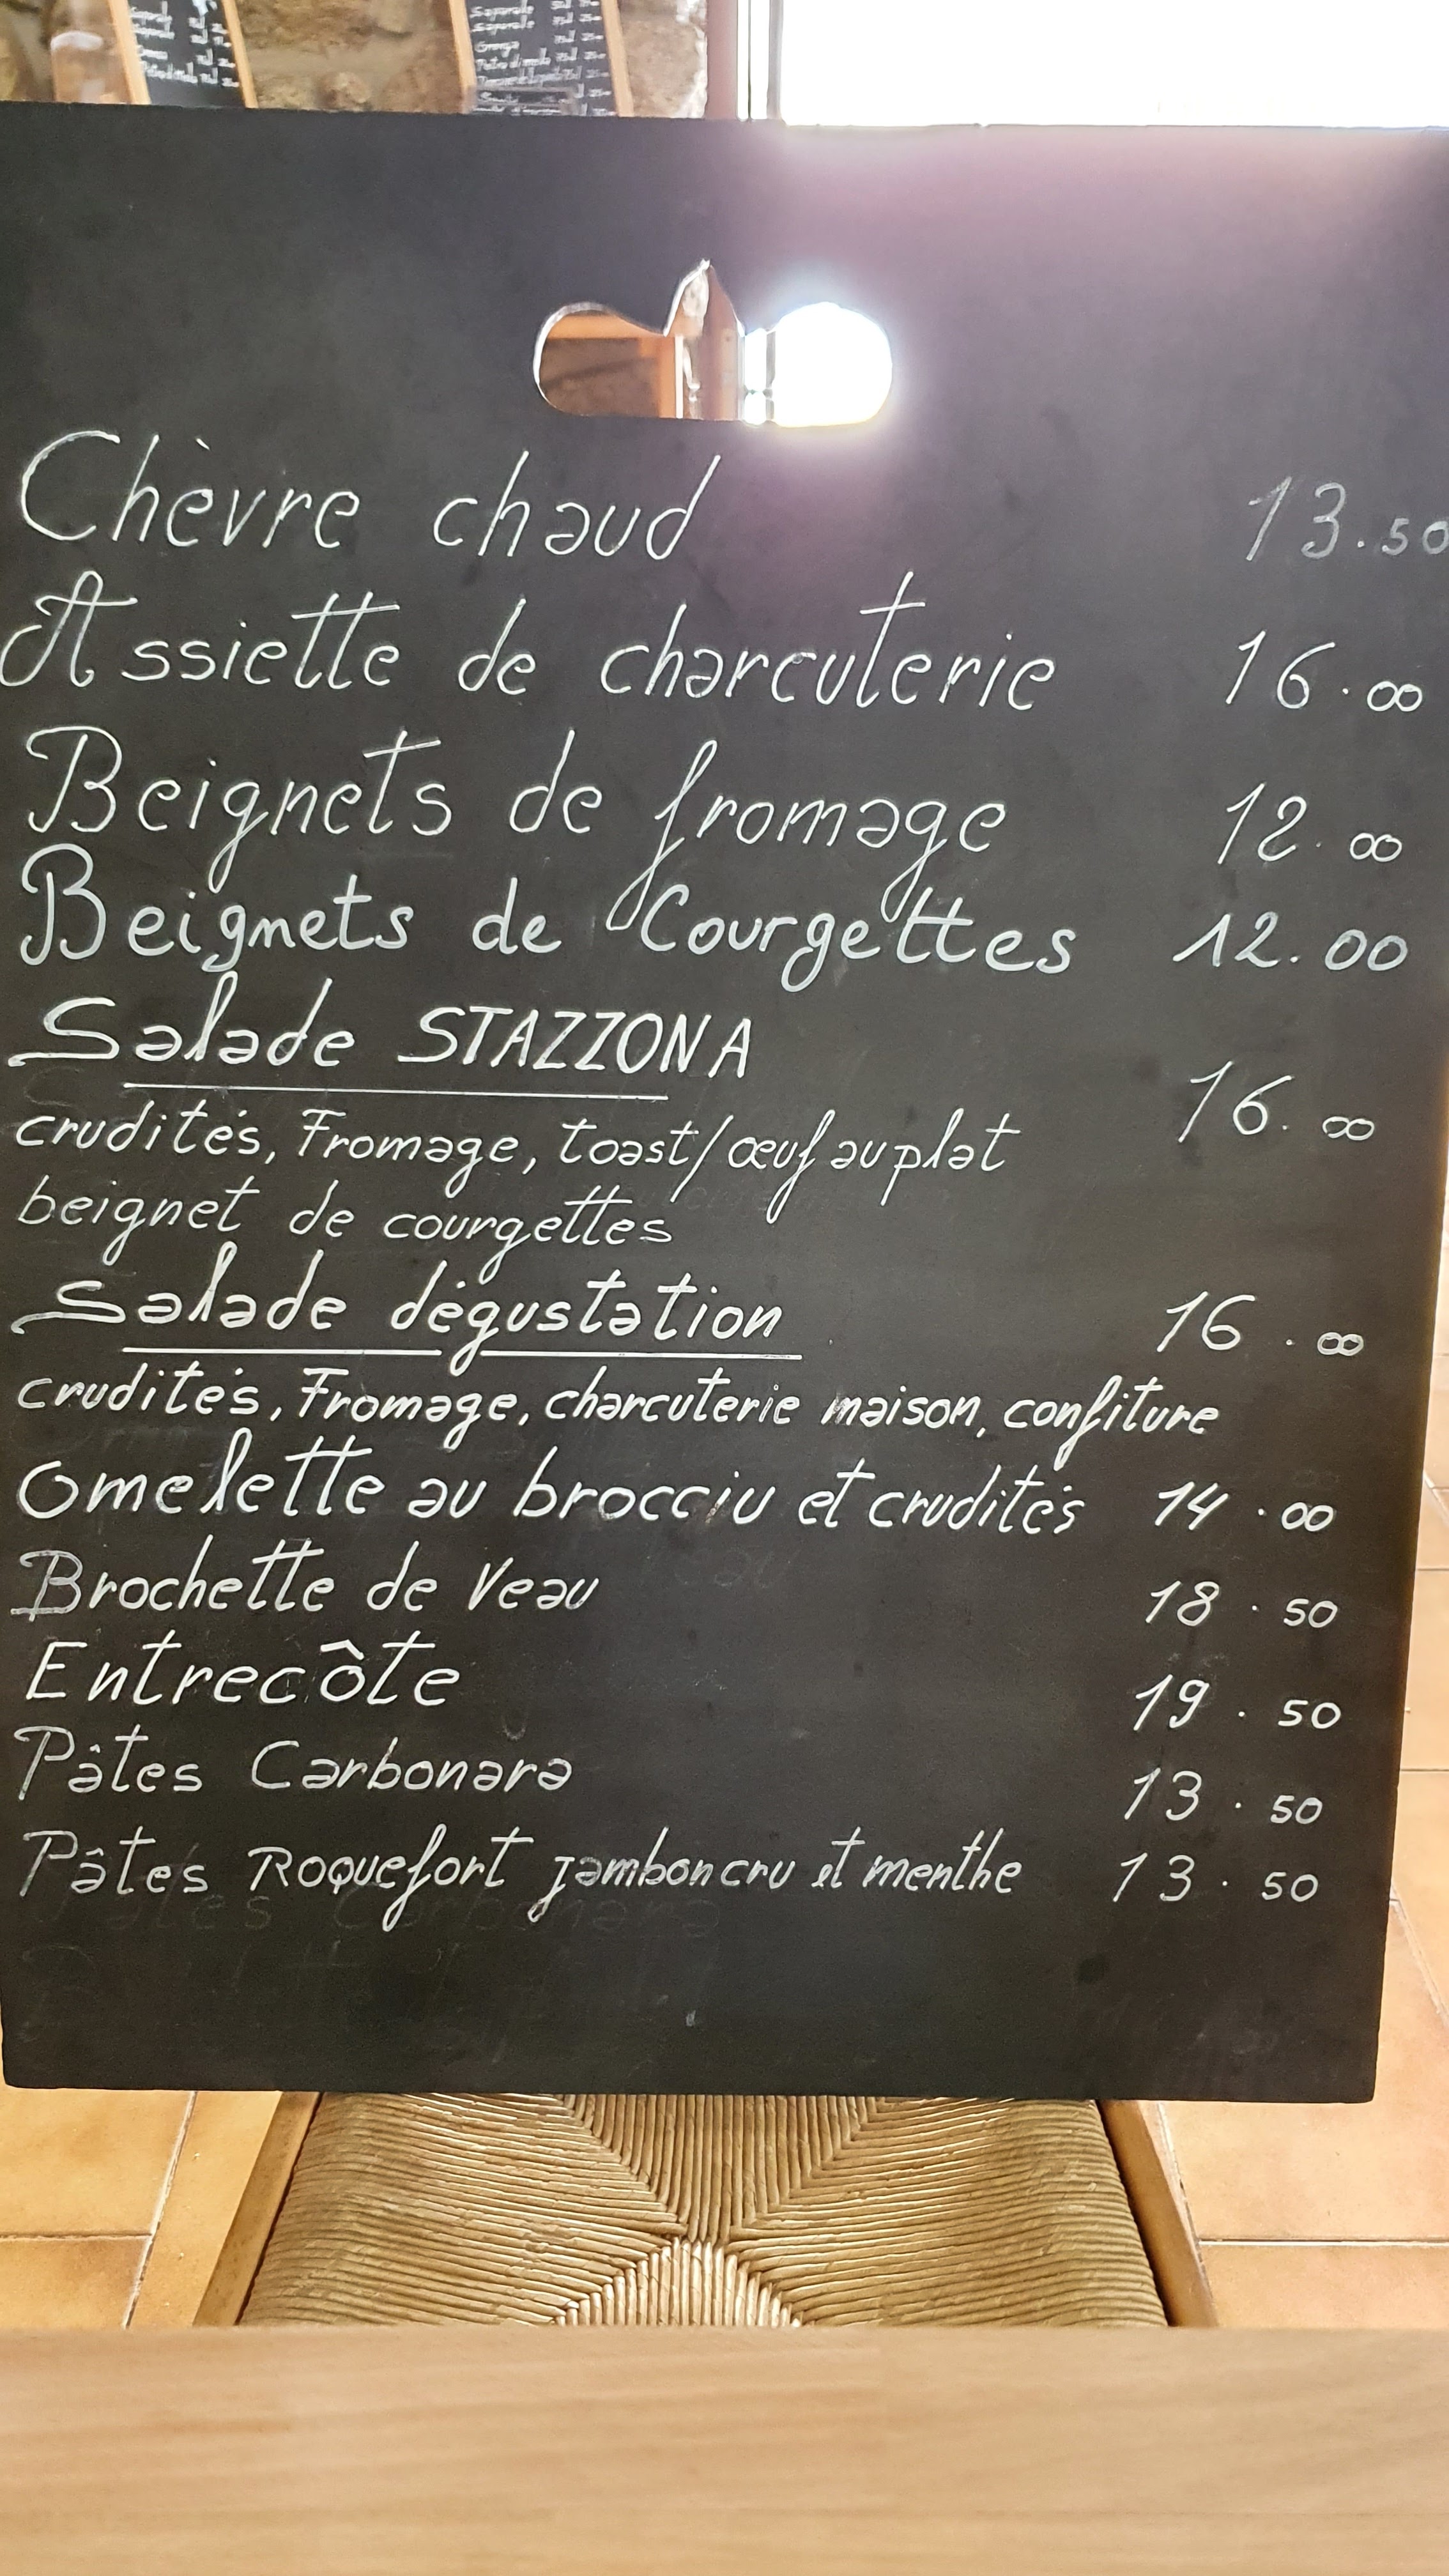 Chèvre chaud 13.50
Assiette de charcuterie 16.00
Beignets de fromage 12.00
Beignets de Courgettes 12.00
Salade STAZZONA 16.00
crudités, Fromage, toast/œuf au plat
beignet de courgettes
Salade dégustation 16.00
crudités, Fromage, charcuterie maison, confiture
Omelette au brocciu et crudités 14.00
Brochette de Veau 18.50
Entrecôte 19.50
Pâtes Carbonara 13.50
Pâtes Roquefort jambon cru et menthe 13.50